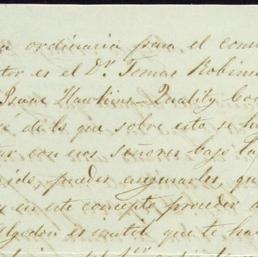 a ordinaria para el cons
tor es el Dr. Tomas Robin
Isaac Hawkins Quality Co
é de lo que sobre esto se ha
tar con esos señores bajo la
ido, pueden asegurarles, qu
y en este concepto proceder a
lgodon es inutil que te ha